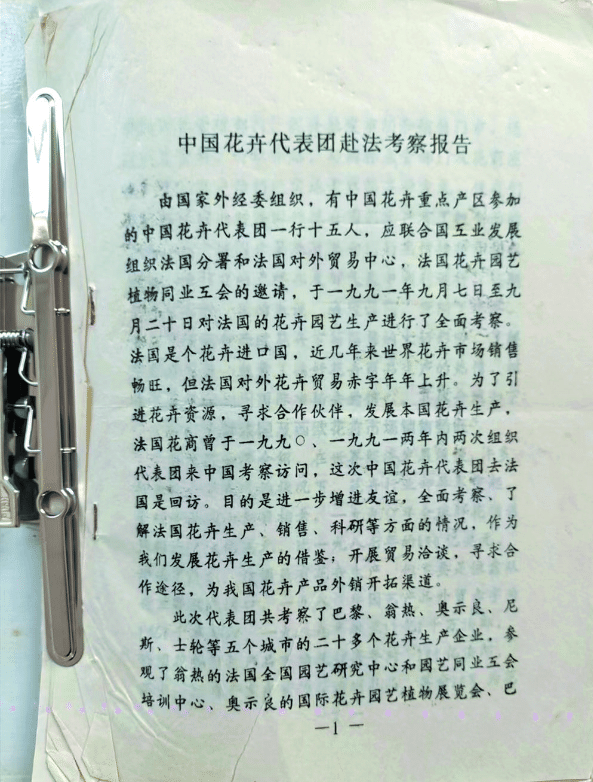 中国花卉代表团赴法考察报告
由国家外经委组织，有中国花卉重点产区参加
的中国花卉代表团一行十五人，应联合国互业发展
组织法国分署和法国对外贸易中心，法国花卉园艺
植物同业互会的邀请，于一九九一年九月七日至九
月二十日对法国的花卉园艺生产进行了全面考察。
法国是个花卉进口国，近几年来世界花卉市场销售
畅旺，但法国对外花卉贸易赤字年年上升。为了引
进花卉资源，寻求合作伙伴，发展本国花卉生产，
法国花商曾于一九九〇、一九九一两年内两次组织
代表团来中国考察访问，这次中国花卉代表团去法
国是回访。目的是进一步增进友谊，全面考察、了
解法国花卉生产、销售、科研等方面的情况，作为
我们发展花卉生产的借鉴；开展贸易洽谈，寻求合
作途径，为我国花卉产品外销开拓渠道。
此次代表团共考察了巴黎、翁热、奥示良、尼
斯、士轮等五个城市的二十多个花卉生产企业，参
观了翁热的法国全国园艺研究中心和园艺同业互会
培训中心、奥示良的国际花卉园艺植物展览会、巴
—1—